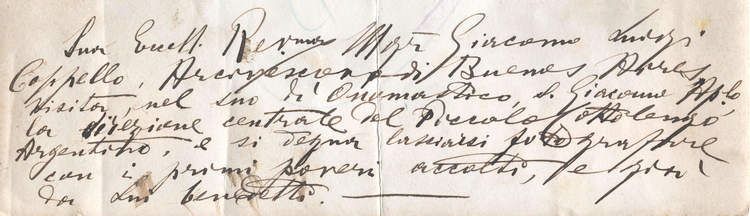 Sua Eccell. Rev.ma Mgr Giacomo Luigi
Coppello, Arcivescovo di Buenos Ayres,
visita, nel suo dì Onomastico, S. Giacomo Ap.lo,
la direzione centrale del Piccolo Cottolengo
Argentino, e si degna lasciarsi fotografare
con i primi poveri accolti, e già
da Lui benedetti.